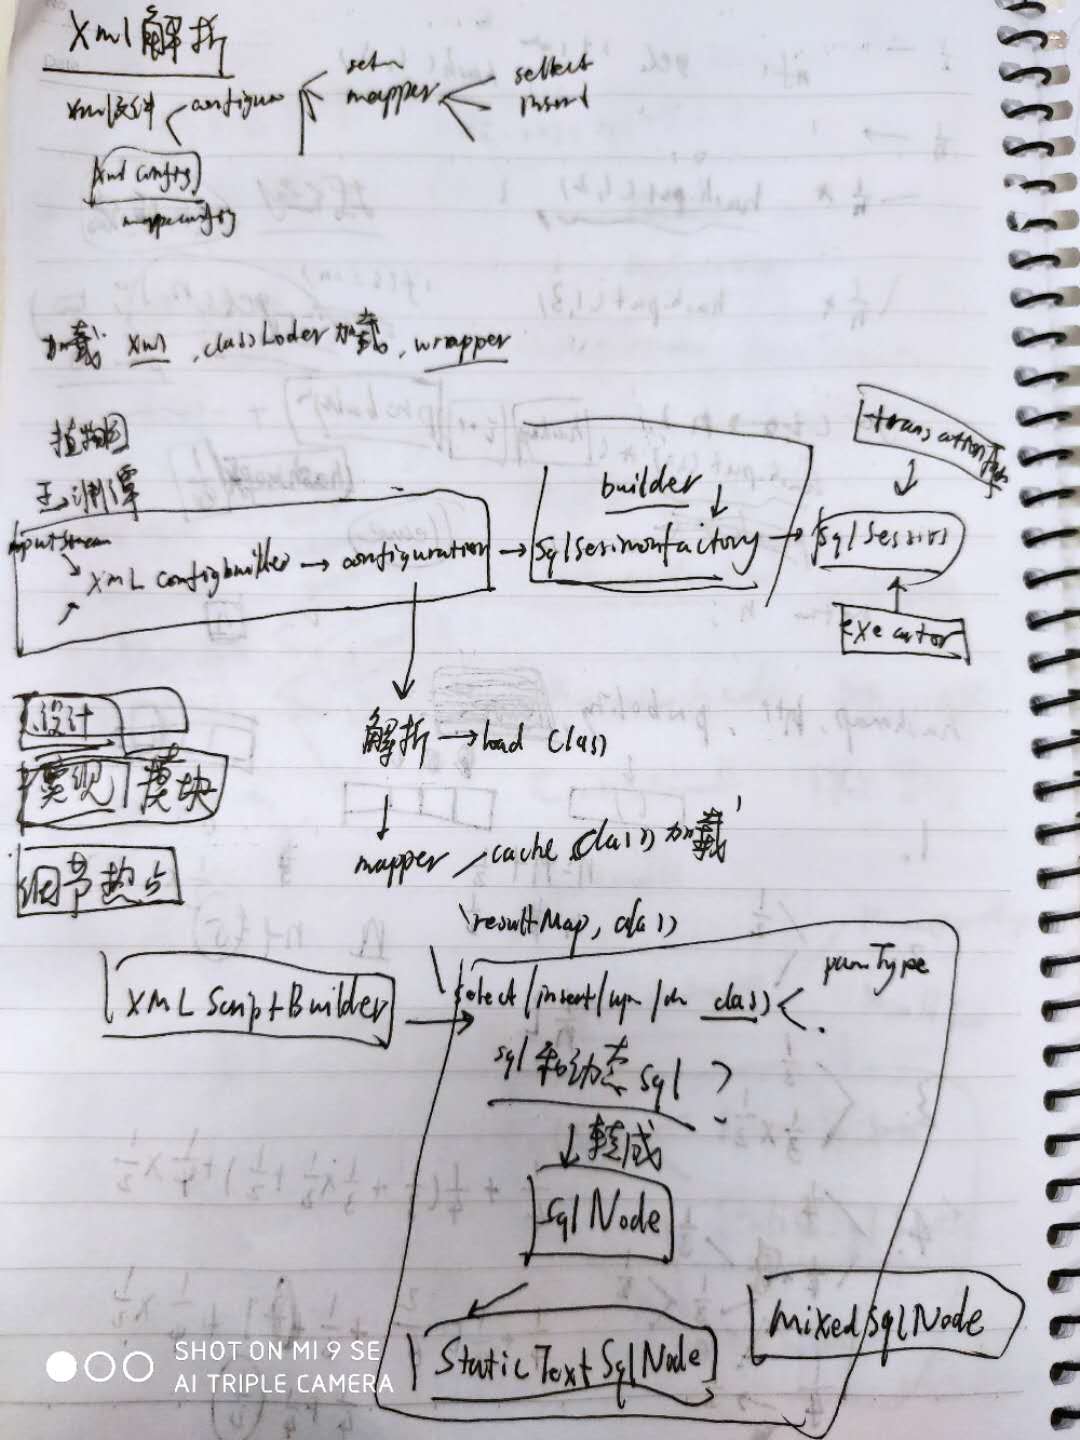 xml 解析
xml文件 configura
setn
mapper
sellect
insert
xml config
mapperconfig
加载 xml , classLoder 加载 , wrapper
植物园
玉渊潭
inputStream
XML configbuilder → configuration →
builder
SqlSessionfactory →
SqlSession
transaction
executor
设计
实现 模块
细节热点
解析 → load class
mapper , cache class 加载
resultMap, class
XMLScriptBuilder
select/insert/up/ class
paramType
sql 和动态 sql ?
转成
Sql Node
StaticTextSqlNode
MixedSqlNode
SHOT ON MI 9 SE
AI TRIPLE CAMERA